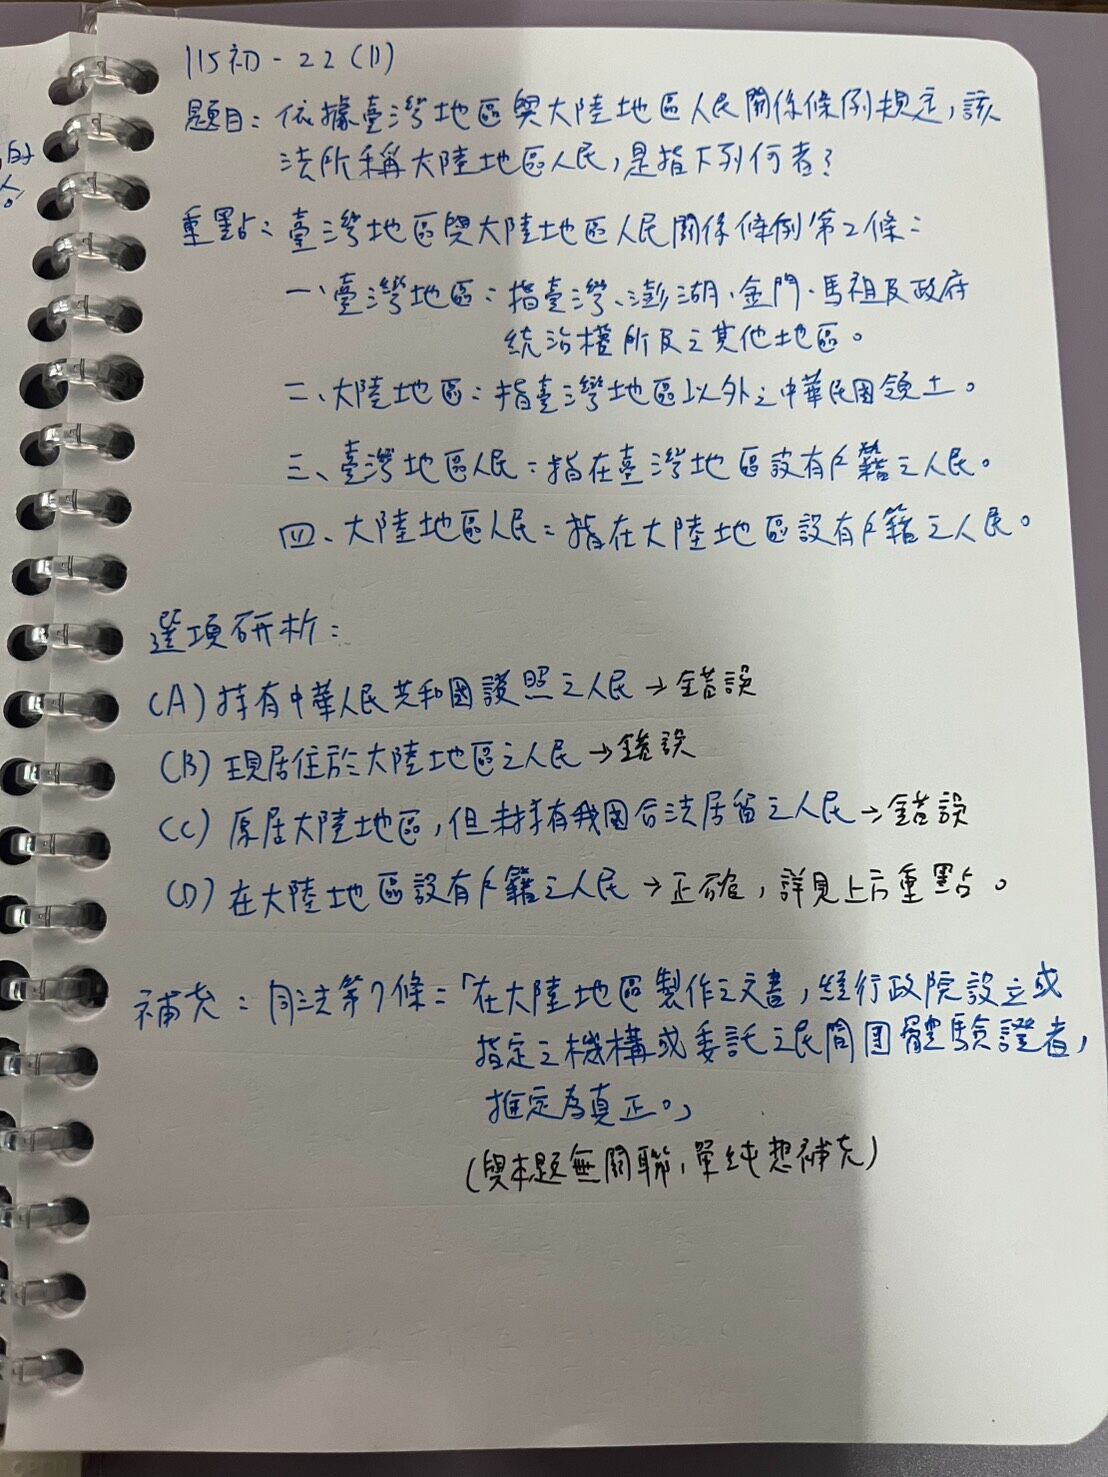 115初-22(D)
題目：依據臺灣地區與大陸地區人民關係條例規定，該
法所稱大陸地區人民，是指下列何者？
重點：臺灣地區與大陸地區人民關係條例第2條：
一、臺灣地區：指臺灣、澎湖、金門、馬祖及政府
統治權所及之其他地區。
二、大陸地區：指臺灣地區以外之中華民國領土。
三、臺灣地區人民：指在臺灣地區設有戶籍之人民。
四、大陸地區人民：指在大陸地區設有戶籍之人民。
選項研析：
(A)持有中華人民共和國護照之人民→錯誤
(B)現居住於大陸地區之人民→錯誤
(C)原居大陸地區，但未持有我國合法居留之人民→錯誤
(D)在大陸地區設有戶籍之人民→正確，詳見上方重點。
補充：同法第7條：「在大陸地區製作之文書，經行政院設立或
指定之機構或委託之民間團體驗證者，
推定為真正。」
(與本題無關聯，單純想補充)
的